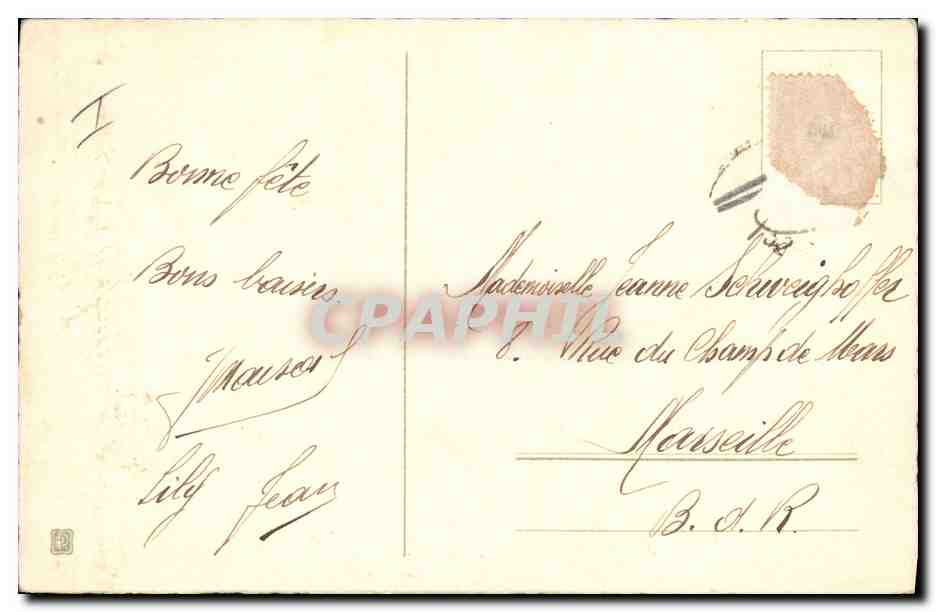 I
Bonne fête
Bons baisers
Lily Jean
Mademoiselle Jeanne Schweighoffer
8. Rue du Champ de Mars
Marseille
B. d. R.
CPAPHIL